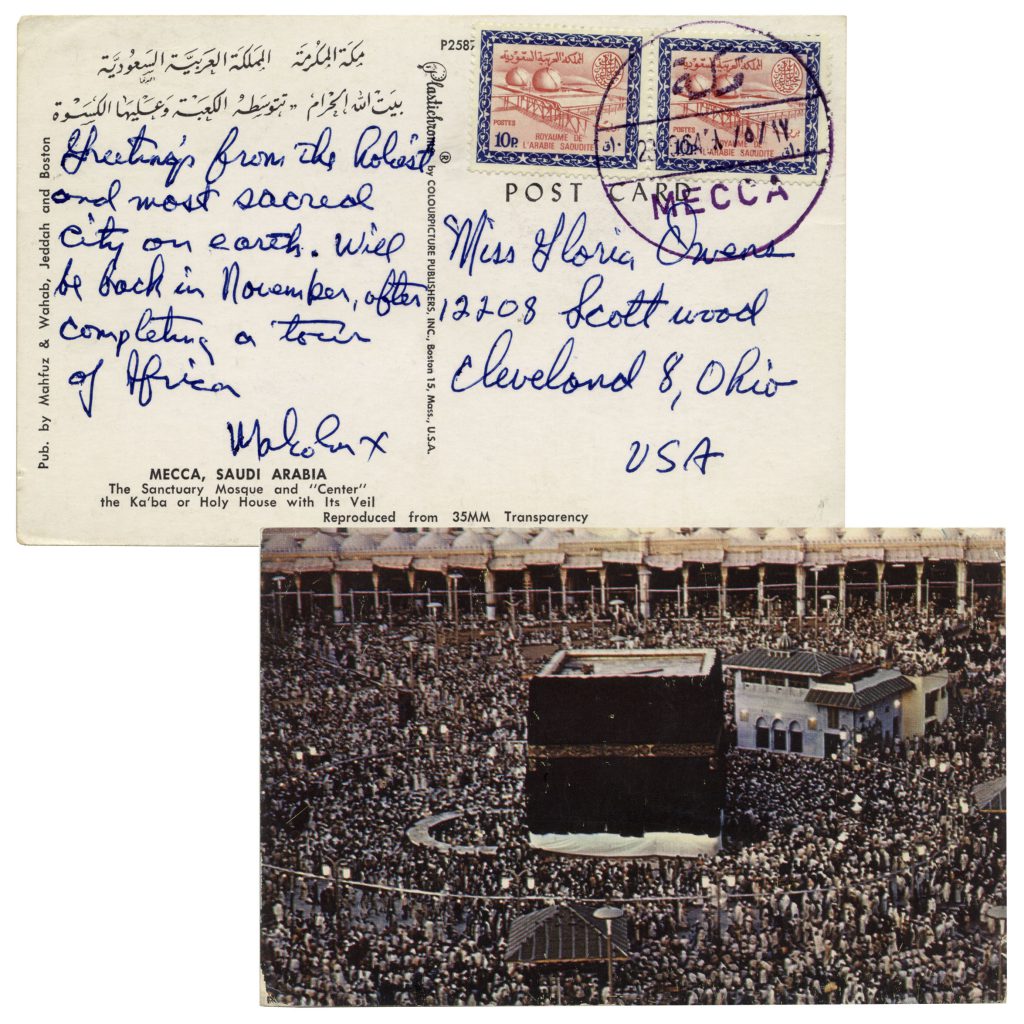 مكة المكرمة المملكة العربية السعودية
بيت الله الحرام تتوسطه الكعبة وعليها الكسوة
Greetings from the holiest
and most sacred
city on earth. Will
be back in November, after
completing a tour
of Africa
Malcolm X
MECCA, SAUDI ARABIA
The Sanctuary Mosque and "Center"
the Ka'ba or Holy House with Its Veil
Reproduced from 35MM Transparency
Pub. by Mahfuz & Wahab, Jeddah and Boston
Plastichrome ® by COLOURPICTURE PUBLISHERS, INC., Boston 15, Mass., U.S.A.
P2587
المملكة العربية السعودية
POSTES
ROYAUME DE
10P. L'ARABIE SAOUDITE
المملكة العربية السعودية
POSTES
10P. L'ARABIE SAOUDITE
MECCA
POST CARD
Miss Gloria Owens
12208 Scottwood
Cleveland 8, Ohio
USA